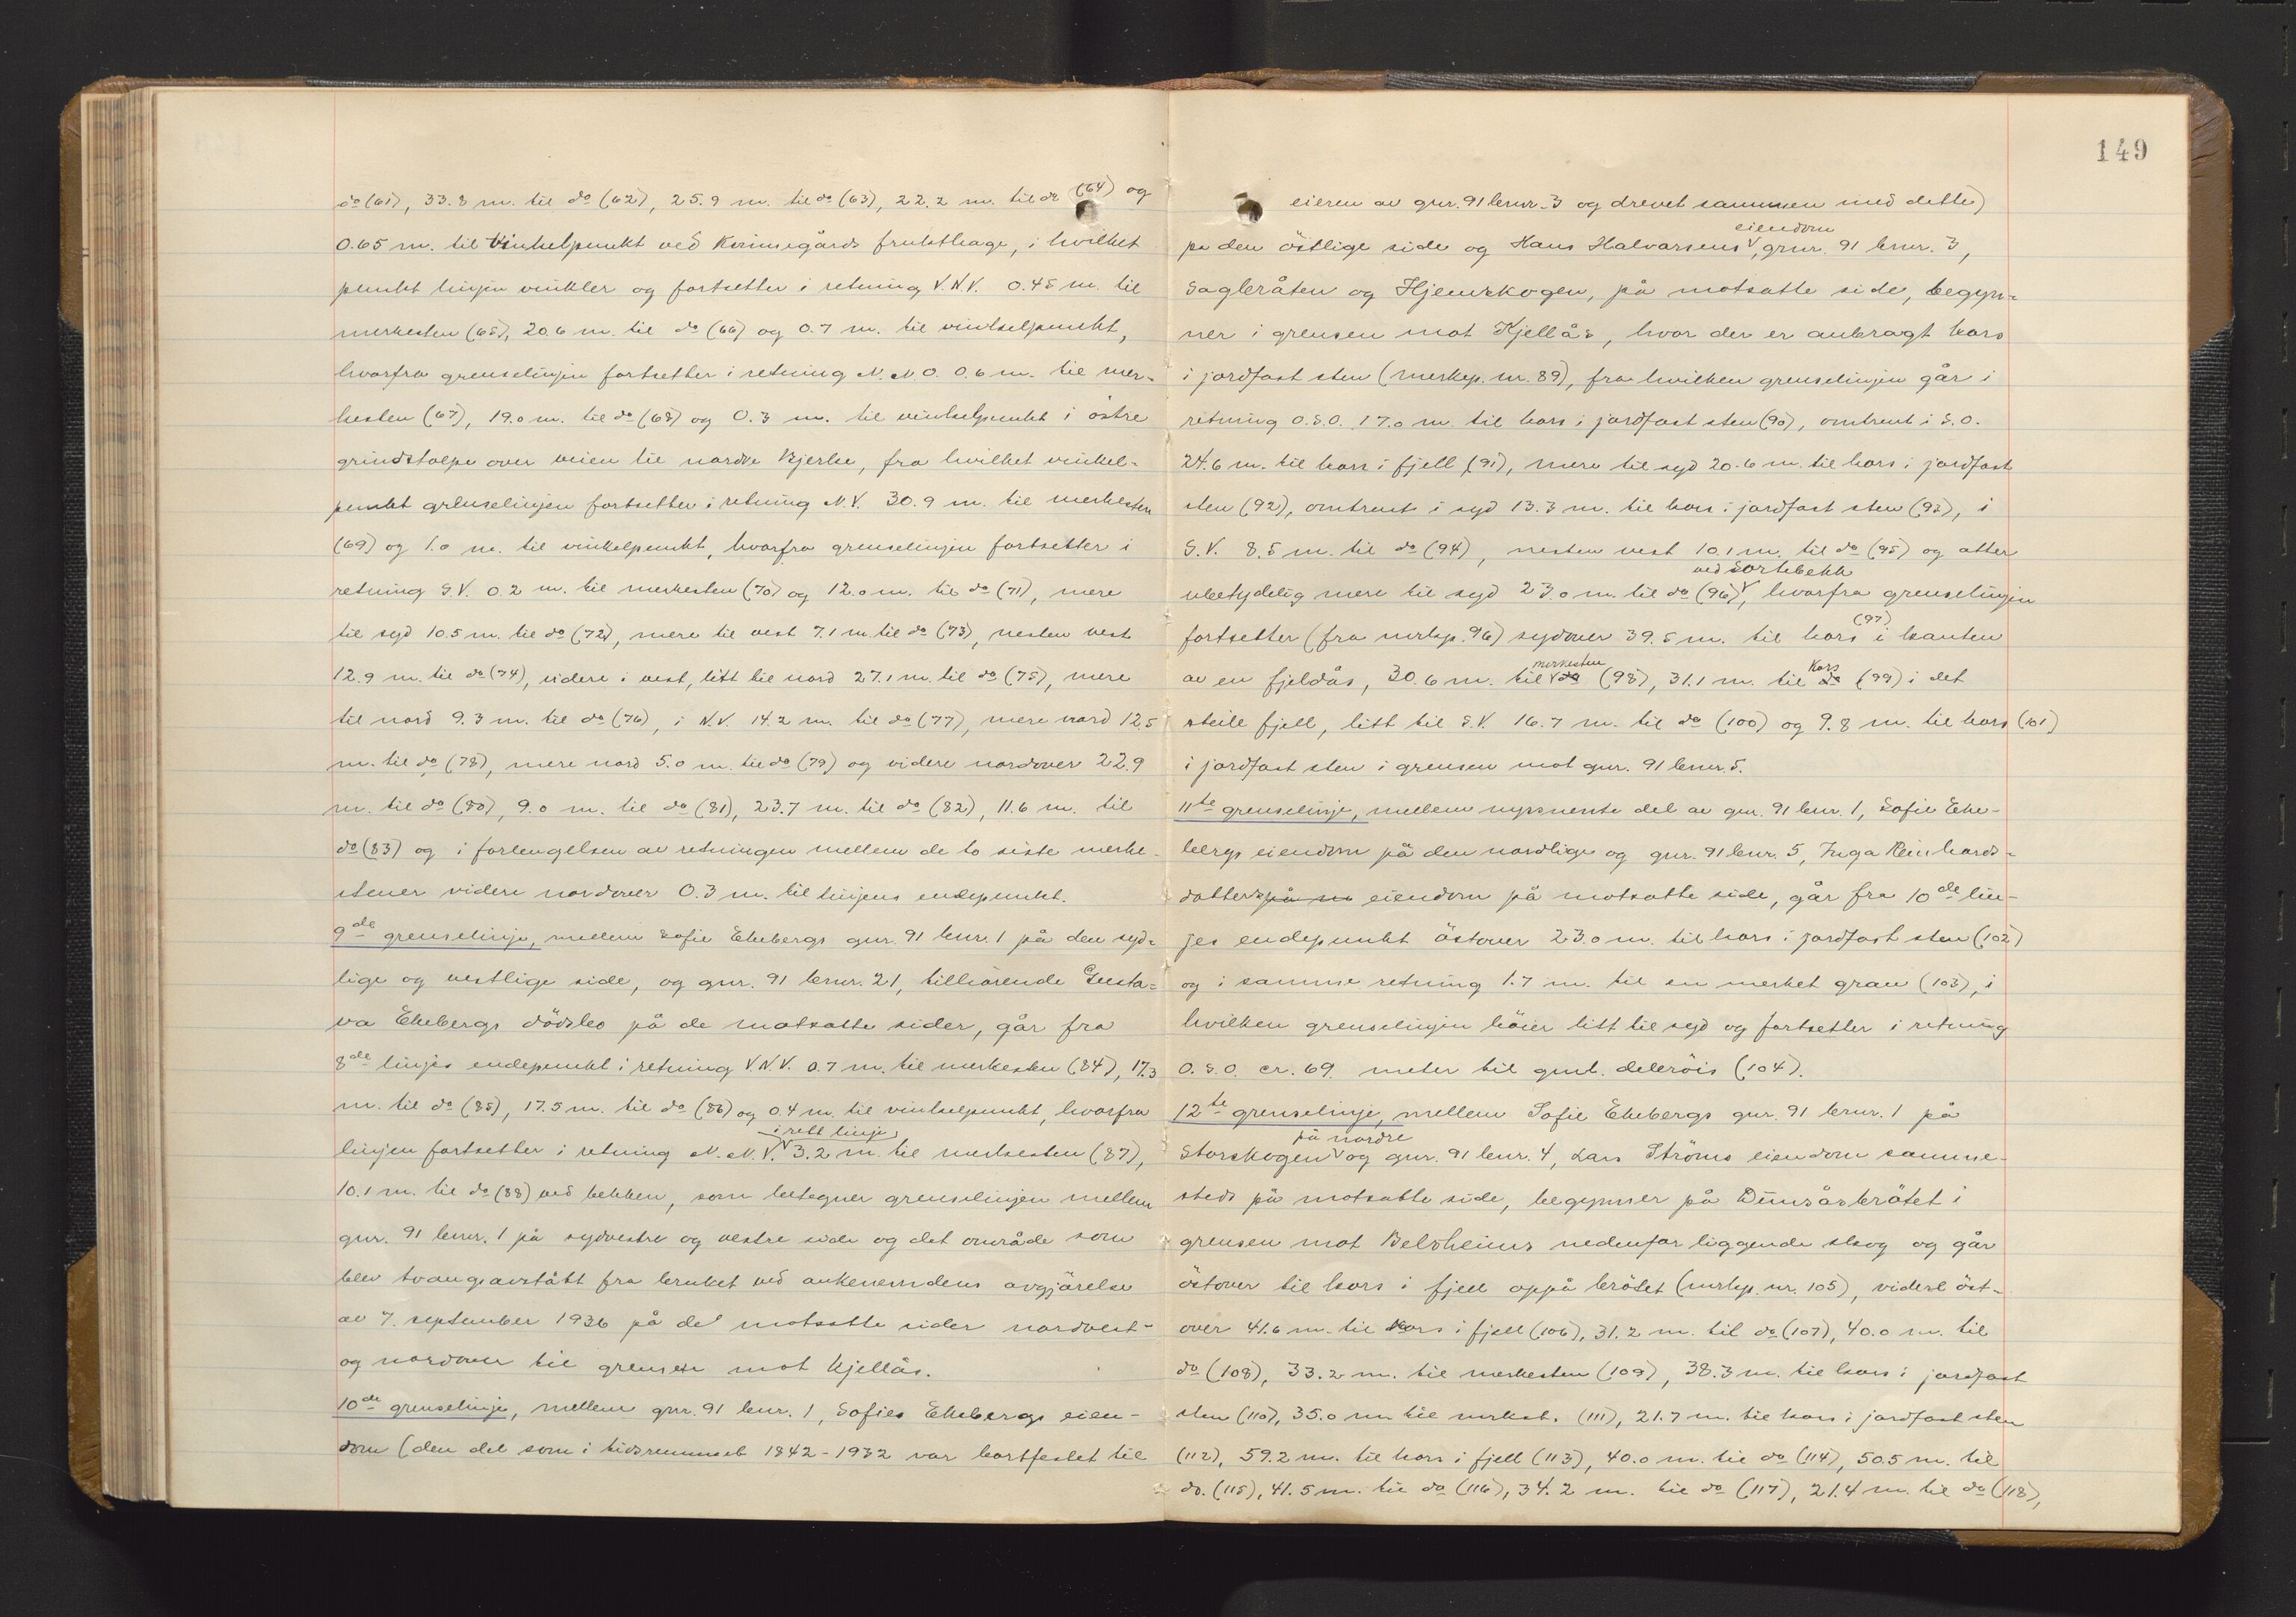 do (61), 33.8 m. til do (62), 25.9 m. til do (63), 22.2 m. til do (64) og
0.65 m. til vinkelpunkt ved Korinsegårds frukthage, i hvilket
punkt linjen vinkler og fortsetter i retning V.N.V. 0.45 m. til
merkesten (65), 20.6 m. til do (66) og 0.7 m. til vinkelpunkt,
hvorfra grenselinjen fortsetter i retning N.N.O. 0.6 m. til mer-
kesten (67), 19.0 m. til do (68) og 0.3 m. til vinkelpunkt i östre
grindstolpe over veien til nordre Bjerke, fra hvilket vinkel-
punkt grenselinjen fortsetter i retning N.V. 30.9 m. til merkesten
(69) og 1.0 m. til vinkelpunkt, hvorfra grenselinjen fortsetter i
retning S.V. 0.2 m. til merkesten (70) og 12.0 m. til do (71), mere
til syd 10.5 m. til do (72), mere til vest 7.1 m. til do (73), nesten vest
12.9 m. til do (74), videre i vest, litt til nord 27.1 m. til do (75), mere
til nord 9.3 m. til do (76), i N.V. 14.2 m. til do (77), mere nord 12.5
m. til do (78), mere nord 5.0 m. til do (79) og videre nordover 22.9
m. til do (80), 9.0 m. til do (81), 23.7 m. til do (82), 11.6 m. til
do (83) og i forlengelsen av retningen mellem de to siste merke-
stener videre nordover 0.3 m. til linjens endepunkt.
9de grenselinje, mellem Sofie Ekebergs gnr. 91 bnr. 1 på den syd-
lige og vestlige side, og gnr. 91 bnr. 21, tilhörende Gusta-
va Ekebergs dödsbo på de motsatte sider, går fra
8de linjes endepunkt i retning V.N.V. 0.7 m. til merkesten (84), 17.3
m. til do (85), 17.5 m. til do (86) og 0.4 m. til vinkelpunkt, hvorfra
linjen fortsetter i retning N.N.V. i rett linje 3.2 m. til merkesten (87),
10.1 m. til do (88) ved bekken, som betegner grenselinjen mellem
gnr. 91 bnr. 1 på sydvestre og vestre side og det område som
blev tvangsavstått fra bruket ved ankenemdens avgjörelse
av 7. september 1936 på de motsatte sider nordvest-
og nordover til grensen mot Kjellås.
10de grenselinje, mellem gnr. 91 bnr. 1, Sofies Ekebergs eien-
dom (den del som i tidsrummet 1842-1932 var bortfestet til
149
eieren av gnr. 91 bnr. 3 og drevet sammen med dette)
på den östlige side og Hans Halvorsens eiendom, gnr. 91 bnr. 3,
Sagbråten og Hjemskogen, på motsatte side, begyn-
ner i grensen mot Kjellås, hvor der er anbragt kors
i jordfast sten (merkep. nr. 89), fra hvilken grenselinjen går i
retning O.S.O. 17.0 m. til kors i jordfast sten (90), omtrent i S.O.
24.6 m. til kors i fjell (91), mere til syd 20.6 m. til kors i jordfast
sten (92), omtrent i syd 13.3 m. til kors i jordfast sten (93), i
S.V. 8.5 m. til do (94), nesten vest 10.1 m. til do (95) og atter
ubetydelig mere til syd 23.0 m. til do (96) ved Sortebekk, hvorfra grenselinjen
fortsetter (fra mrkp. 96) sydover 39.5 m. til kors (97) i kanten
av en fjeldås, 30.6 m. til merkesten do (98), 31.1 m. til Kors do (99) i det
steile fjell, litt til S.V. 16.7 m. til do (100) og 9.8 m. til kors (101)
i jordfast sten i grensen mot gnr. 91 bnr. 5.
11te grenselinje, mellem nyssnevnte del av gnr. 91 bnr. 1, Sofie Eke-
bergs eiendom på den nordlige og gnr. 91 bnr. 5, Inga Reinhards-
datters på m eiendom på motsatte side, går fra 10de lin-
jes endepunkt östover 23.0 m. til kors i jordfast sten (102)
og i samme retning 1.7 m. til en merket gran (103), i
hvilken grenselinjen böier litt til syd og fortsetter i retning
O.S.O. cr. 69 meter til gml. deleröis (104).
12te grenselinje, mellem Sofie Ekebergs gnr. 91 bnr. 1 på
Storskogen på nordre og gnr. 91 bnr. 4, Lars Ströms eiendom samme-
steds på motsatte side, begynner på Dünsåsbråtet i
grensen mot Belsheims nedenfor liggende skog og går
östover til kors i fjell oppå bråtet (mrkp. nr. 105), videre öst-
over 41.6 m. til kors i fjell (106), 31.2 m. til do (107), 40.0 m. til
do (108), 33.2 m. til merkesten (109), 38.3 m. til kors i jordfast
sten (110), 35.0 m til merkst. (111), 21.7 m. til kors i jordfast sten
(112), 59.2 m. til kors i fjell (113), 40.0 m. til do (114), 50.5 m. til
do. (115), 41.5 m. til do (116), 34.2 m. til do (117), 21.4 m. til do (118),